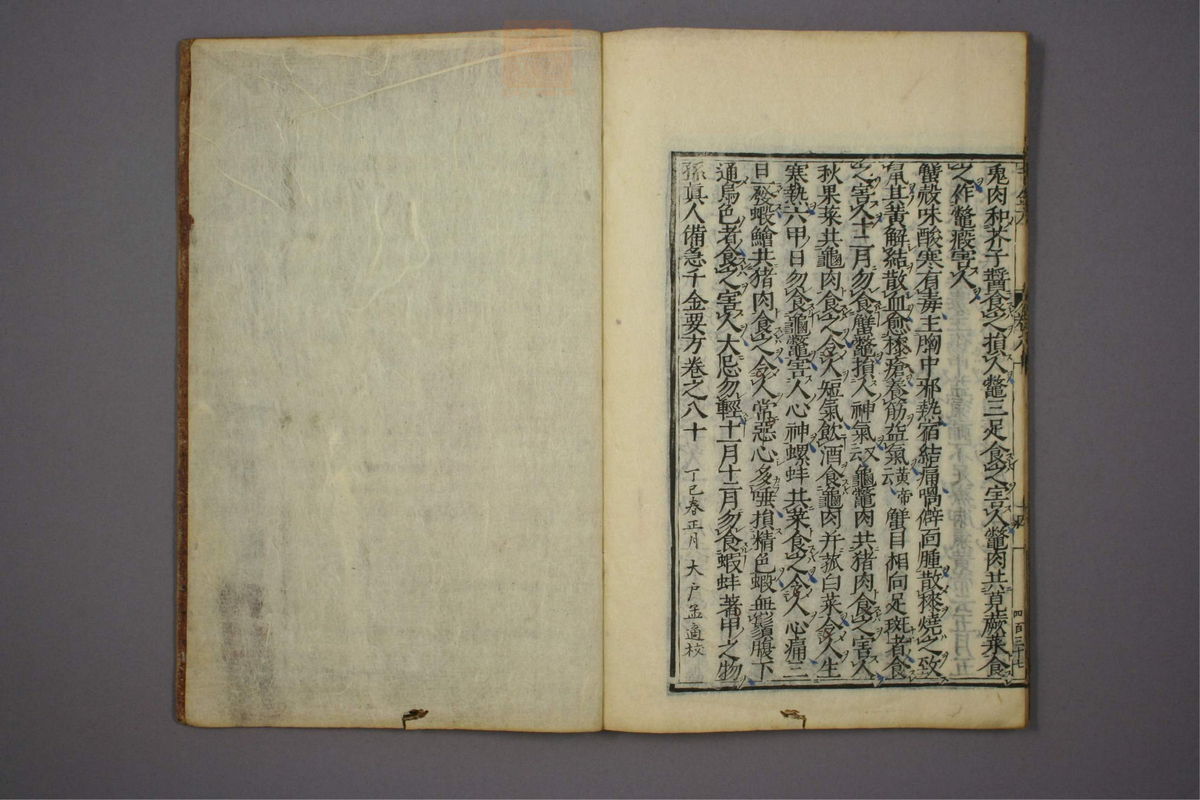 兎肉和芥子醬食之損人鼈三足食之害人鼈肉共莧蕨菜食
之作鼈瘕害人
蟹殼味酸寒有毒主胸中邪熱宿結痛喎僻面腫散漆燒之致
鼠其黄解結散血愈漆瘡養筋益氣黄帝云蟹目相向足斑者食
之害人十二月勿食蟹鼈損人神氣又云龜鼈肉共猪肉食之害人
秋果菜共龜肉食之令人短氣飲酒食龜肉并菰白菜令人生
寒熱六甲日勿食龜鼈害人心神螺蚌共菜食之令人心痛三
日一發蝦鱠共猪肉食之令人常惡心多唾損精色蝦無鬚腹下
通烏色者食之害人大忌勿輕十一月十二月勿食蝦蚌著甲之物
孫眞人備急千金要方卷之八十 丁巳春正月 大戸孟適校
四百三十七